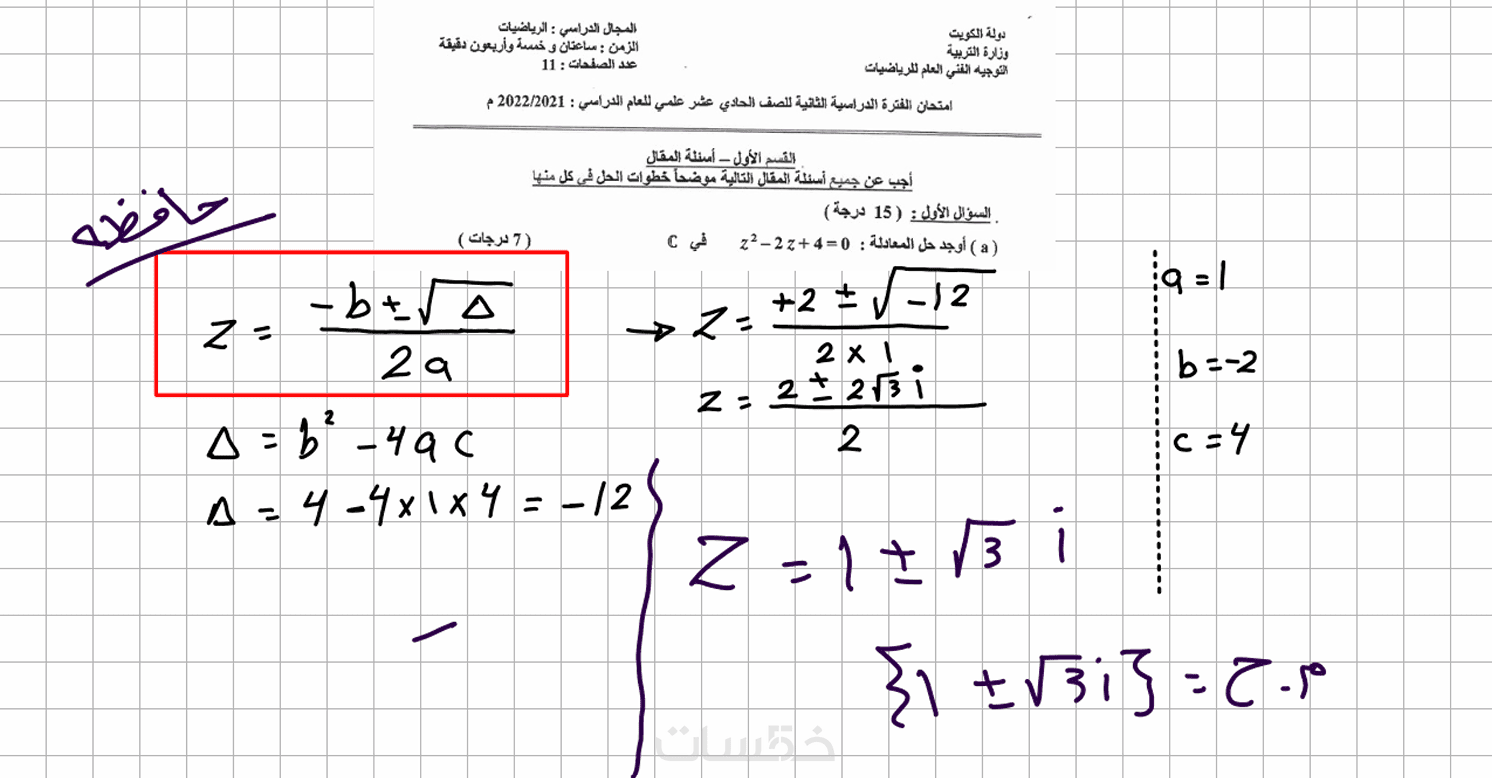 دولة الكويت
وزارة التربية
التوجيه الفني العام للرياضيات
المجال الدراسي : الرياضيات
الزمن : ساعتان و خمسة وأربعون دقيقة
عدد الصفحات : 11
امتحان الفترة الدراسية الثانية للصف الحادي عشر علمي للعام الدراسي : 2022/2021 م
القسم الأول – أسئلة المقال
أجب عن جميع أسئلة المقال التالية موضحاً خطوات الحل في كل منها
السؤال الأول : ( 15 درجة )
( a ) أوجد حل المعادلة : z² – 2 z + 4 = 0 في ℂ ( 7 درجات )
z = (-b ± √Δ) / 2a
Δ = b² - 4ac
Δ = 4 - 4 × 1 × 4 = -12
→ z = (+2 ± √-12) / (2 × 1)
z = (2 ± 2√3 i) / 2
a = 1
b = -2
c = 4
Z = 1 ± √3 i
{1 ± √3 i} = م.ح
خمسات